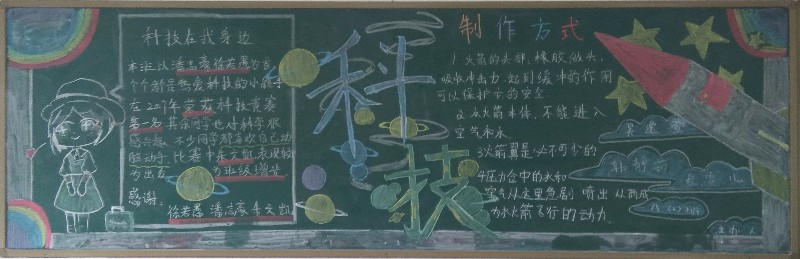 科技在我身边
本班以潘志豪徐若愚为首
个个都是热爱科技的小能手
在2017年学校科技竞赛
第一名其余同学也对科学很
感兴趣.不少同学都喜欢自己动
脑动手.比赛中朱文凯表现较
为出众 为班级增光
感谢:
徐若愚 潘志豪 朱文凯
科技
制作方式
1.火箭的头部,橡胶做头,
吸收冲击力,起到缓冲的作用
可以保护它的安全.
2.水火箭本体,不能进入
空气和水
3火箭翼是必不可少的
4压力仓中的水和
空气从这里急剧喷出从而成
为水火箭飞行的动力.
主办人